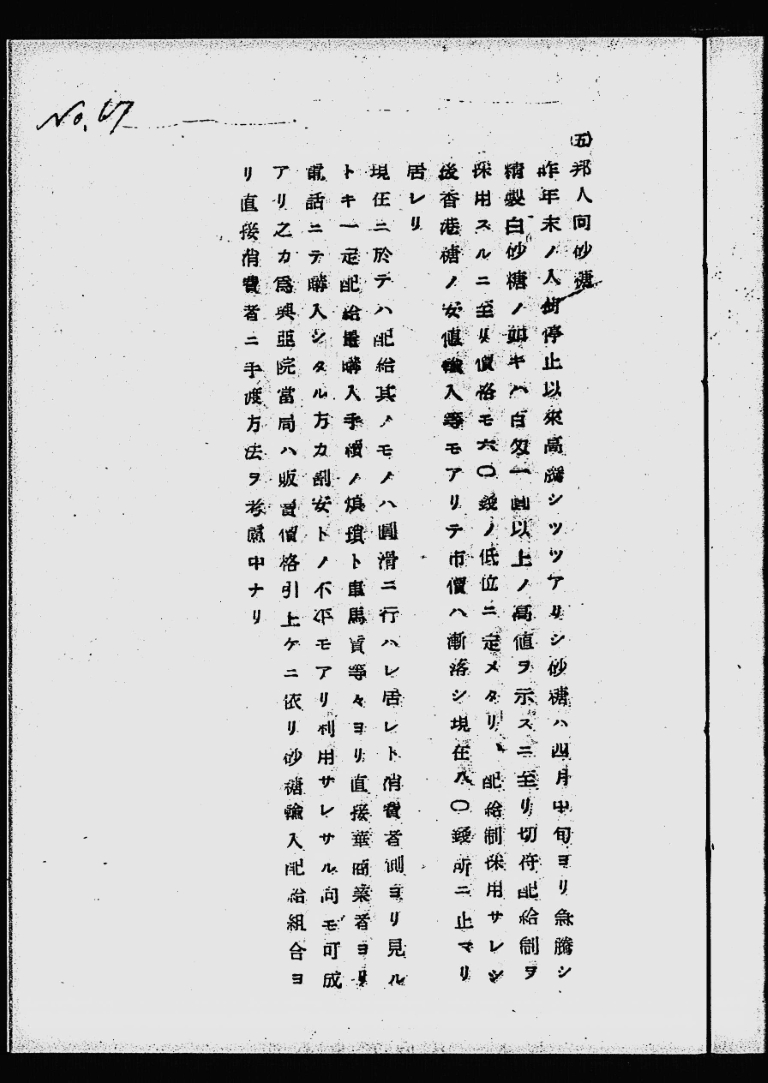 No. 67
㈤邦人向砂糖
昨年末ノ入荷停止以來高騰シツツアリシ砂糖ハ四月中旬ヨリ急騰シ
精製白砂糖ノ如キハ百匁一圓以上ノ高値ヲ示スニ至リ切符配給制ヲ
採用スルニ至リ價格モ六〇錢ノ低位ニ定メタリ、配給制採用サレシ
後香港糖ノ安値輸入等モアリテ市價ハ漸落シ現在八〇錢所ニ止マリ
居レリ
現在ニ於テハ配給其ノモノハ圓滑ニ行ハレ居レト消費者側ヨリ見ル
トキ一定配給量購入手續ノ煩瑣ト車馬賃等々ヨリ直接華商業者ヨリ
電話ニテ購入シタル方カ割安トノ不平モアリ利用サレサル向モ可成
アリ之カ爲興亞院當局ハ販賣價格引上ケニ依リ砂糖輸入配給組合ヨ
リ直接消費者ニ手渡方法ヲ考慮中ナリ